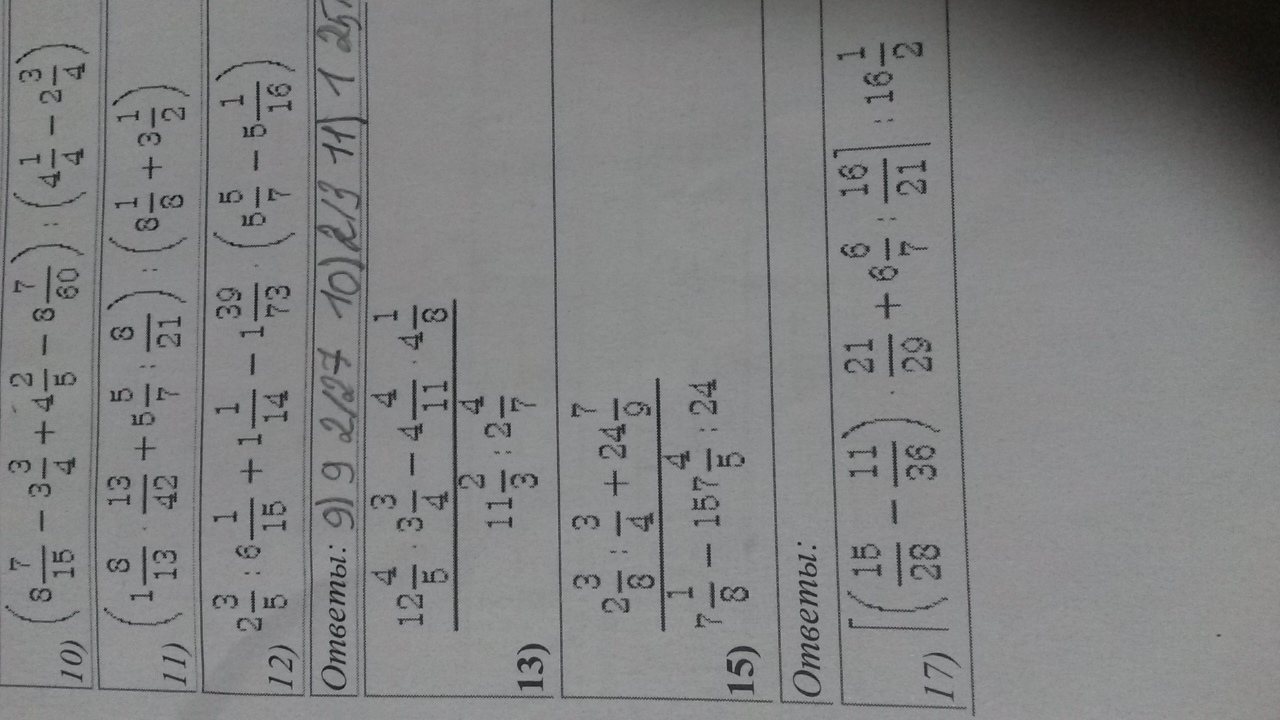 10) (8 7/15 − 3 3/4 + 4 2/5 − 8 7/60) : (4 1/4 − 2 3/4)
11) (1 8/13 · 13/42 + 5 5/7 : 8/21) : (8 1/8 + 3 1/2)
12) 2 3/5 : 6 1/15 + 1 1/14 − 1 39/73 · (5 5/7 − 5 1/16)
Ответы: 9) 9 2/27 10) 2/3 11) 1 25
13) (12 4/5 · 3 3/4 − 4 4/11 · 4 1/8) / (11 2/3 : 2 4/7)
15) (2 3/8 : 3/4 + 24 7/9) / (7 1/8 − 157 4/5 : 24)
Ответы:
17) [(15/28 − 11/36) · 21/29 + 6 6/7 : 16/21] : 16 1/2